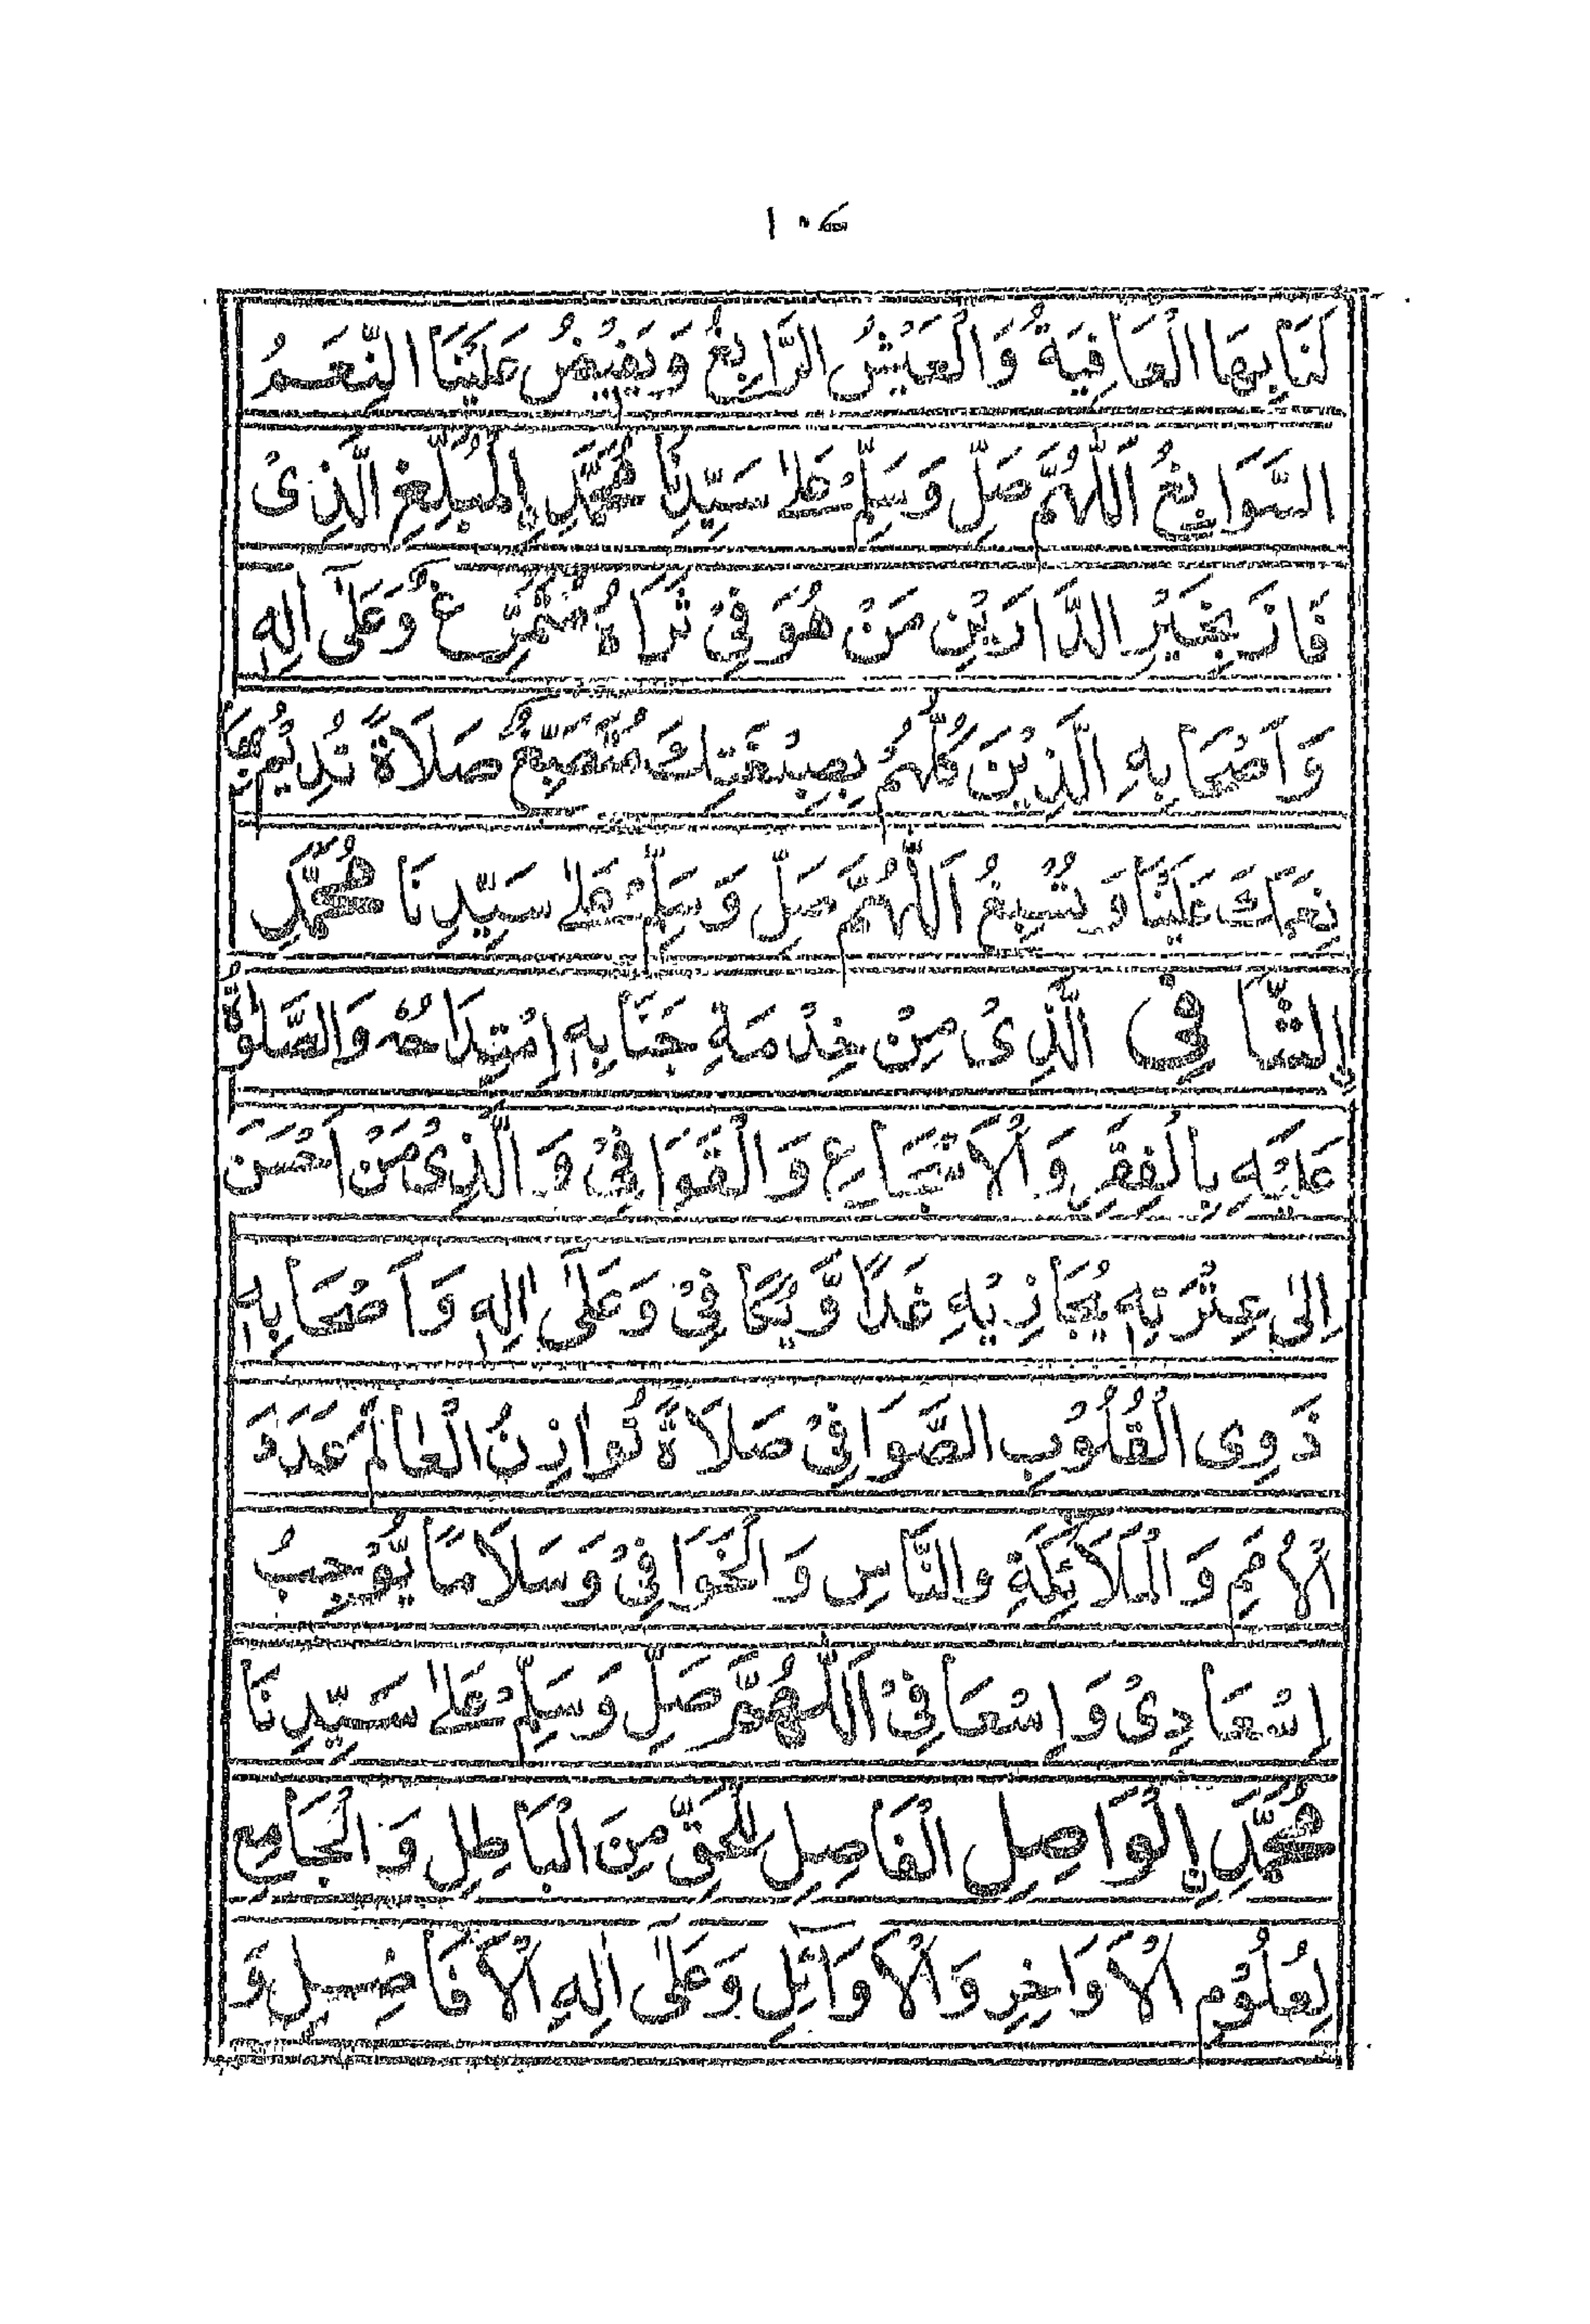 لَنَا بِهَا الْعَافِيَةُ وَالْعَيْشُ الرَّابِغُ وَيَفِيْضُ عَلَيْنَا النِّعَمُ
السَّوَابِغُ اَللّٰهُمَّ صَلِّ وَسَلِّمْ عَلٰى سَيِّدِنَا مُحَمَّدِ اِلْمُبَلِّغِ الَّذِىْ
فَازَ بِخَيْرِ الدَّارَيْنِ مَنْ هُوَ فِىْ ثَرَاهُ مُتَمَرِّغٌ وَعَلٰى اٰلِهِ
وَاَصْحَابِهِ الَّذِيْنَ كُلُّهُمْ بِصِبْغَتِكَ مُتَصَبِّغٌ صَلَاةً تُدِيْمُ بِهَا
نِعَمَكَ عَلَيْنَا وَتُسْبِغُ اَللّٰهُمَّ صَلِّ وَسَلِّمْ عَلٰى سَيِّدِنَا مُحَمَّدِ
اِلشَّافِىْ الَّذِىْ مِنْ خِدْمَةِ جَنَابِهِ امْتِدَاحُهُ وَالصَّلٰوةُ
عَلَيْهِ بِالْفِقَرِ وَالْاَسْجَاعِ وَالْقَوَافِىْ وَالَّذِىْ مَنْ اَحْسَنَ
اِلٰى عِتْرَتِهِ يُجَازِيْهِ غَدًا وَّيُكَافِىْ وَعَلٰى اٰلِهِ وَاَصْحَابِهِ
ذَوِى الْقُلُوْبِ الصَّوَافِىْ صَلَاةً تُوَازِنُ الْعَالَمَ عَدَدَ
الْاُمَمِ وَالْمَلَائِكَةِ وَالنَّاسِ وَالْخَوَافِىْ وَسَلَامًا يُّوْجِبُ
اِسْعَادِىْ وَاِسْعَافِىْ اَللّٰهُمَّ صَلِّ وَسَلِّمْ عَلٰى سَيِّدِنَا
مُحَمَّدِ اِلْوَاصِلِ الْفَاصِلِ لِلْحَقِّ مِنَ الْبَاطِلِ وَالْجَامِعِ
لِعُلُوْمِ الْاَوَاخِرِ وَالْاَوَائِلِ وَعَلٰى اٰلِهِ الْاَفَاضِلِ وَ